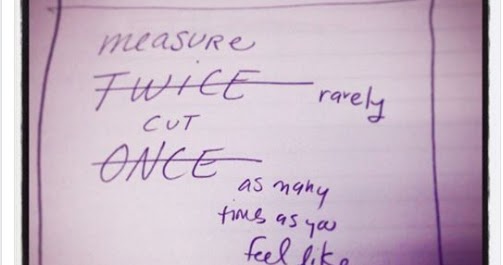 measure
TWICE rarely
CUT
ONCE
as many
times as you
feel like